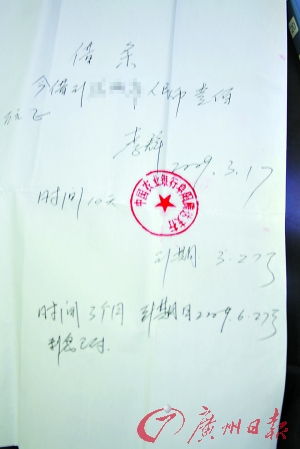 借条
今借到 人民币壹佰
万元正
2009.3.17
中国农业银行 支行
时间10天
到期 3.27号
时间3个月 到期日2009.6.27号
利息已付.
廣州日報